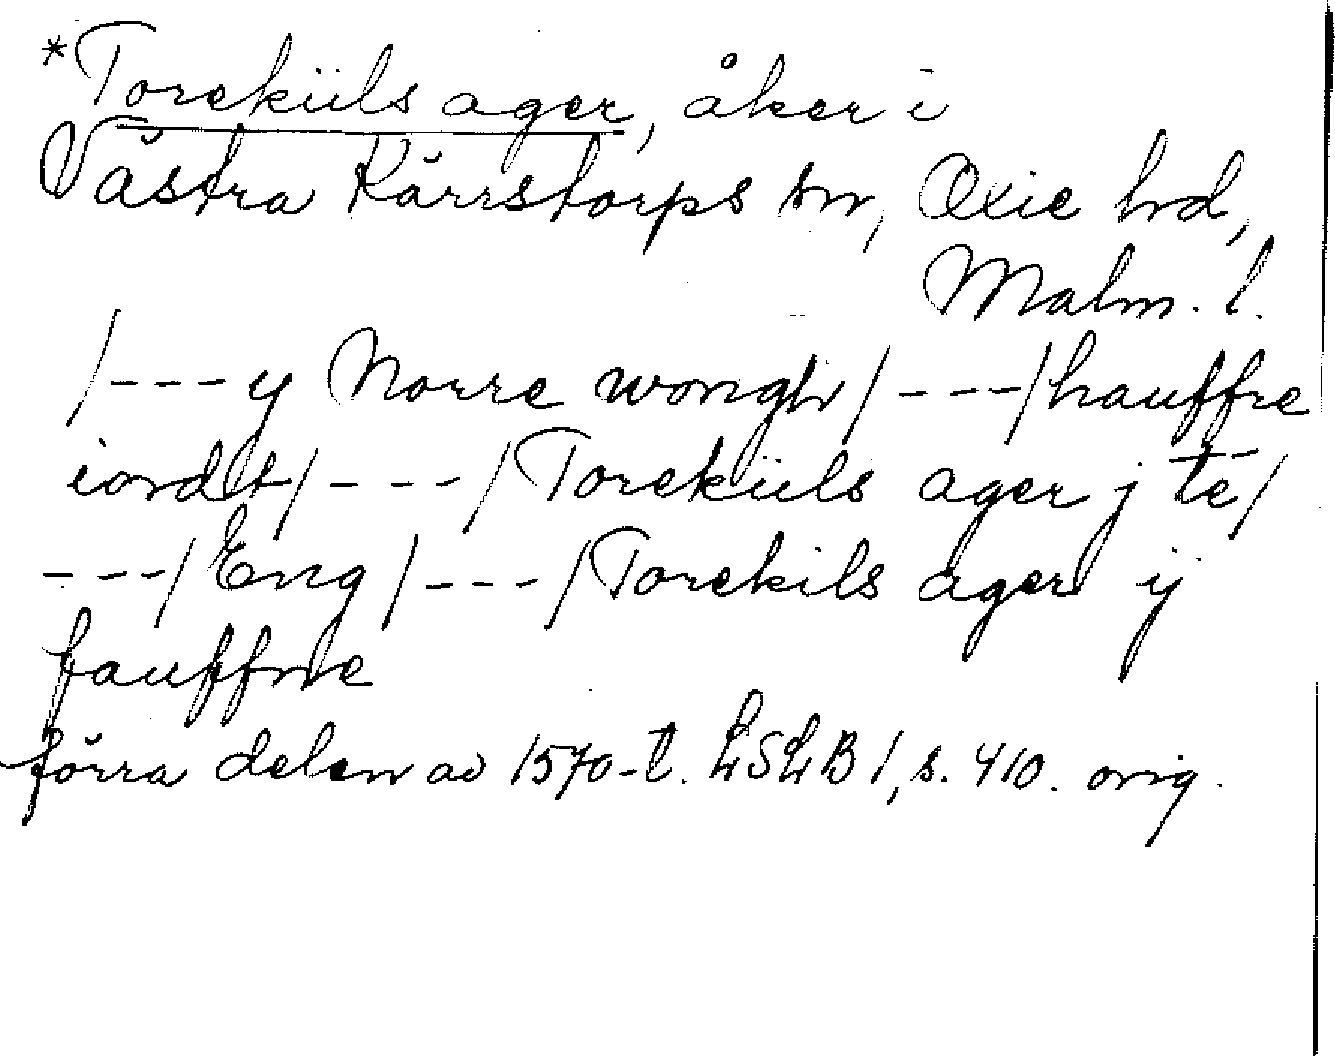 *Toreküls ager, åker i
Västra Kärrstorps sn, Oxie hd,
Malm. l.
/---y Norre wongh/---/hauffre
iordt/---/Toreküls ager j te/
---/Eng/---/Torekils ager ij
fauffne
förra delen av 1570-t. LSLB 1, s. 410. orig.